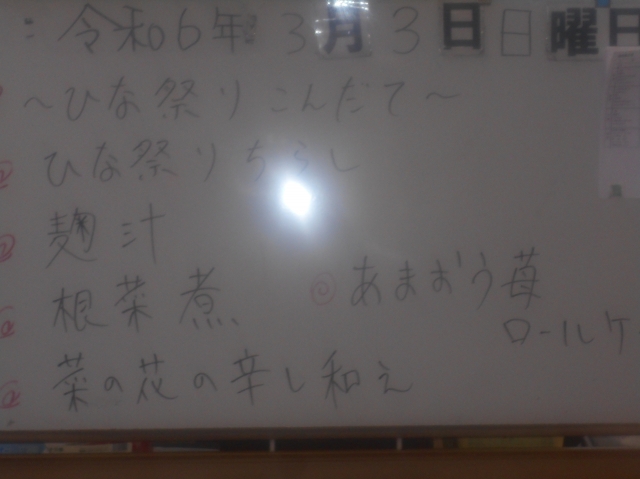 令和6年 3月3日 日曜日
～ひな祭りこんだて～
ひな祭りちらし
麹汁
根菜煮
◎あまおう苺
ロールケ
菜の花の辛し和え